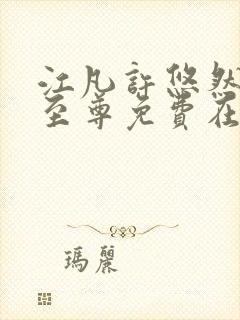 江凡許悠然
至尊免費在
瑪麗